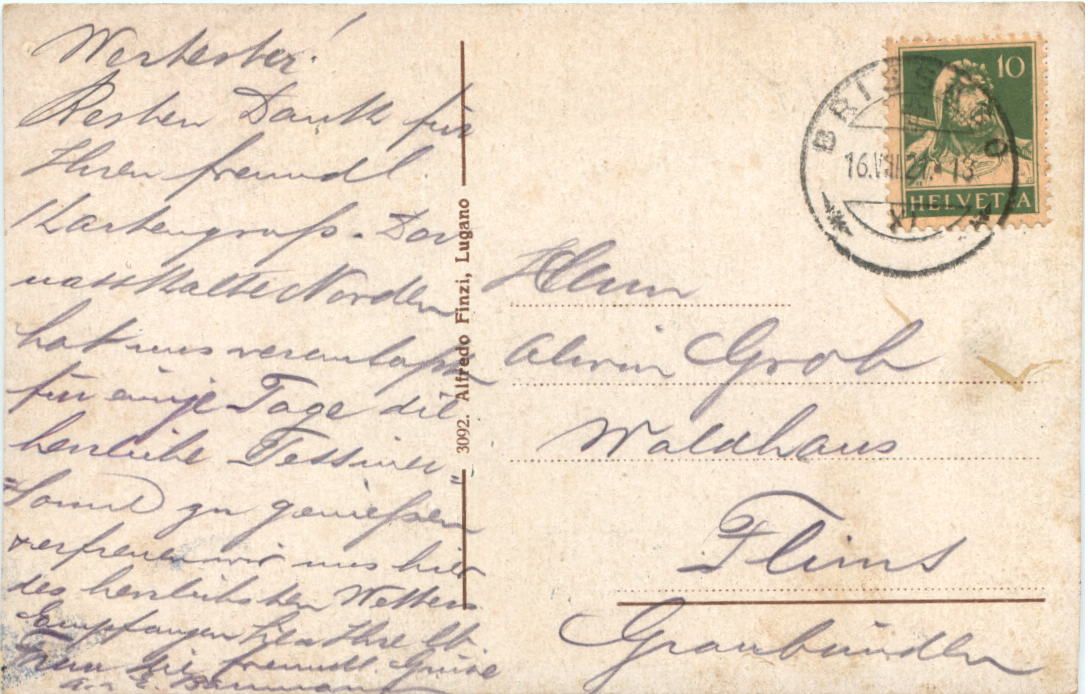 Wertester!
Besten Dank für
Ihren freundl.
Kartengruß. Der
nasskalte Norden
hat uns veranlaßt
für einige Tage die
herrliche Tessiner-
Sonne zu genießen
erfreuen wir uns hier
des herrlichsten Wetters
Empfangen Sie u Ihre lb.
Frau die freundl. Grüsse
3092. Alfredo Finzi, Lugano
10
HELVETIA
BRISSAGO
16.VIII.21. 13
Herrn
Alwin Grob
Waldhaus
Flims
Graubünden